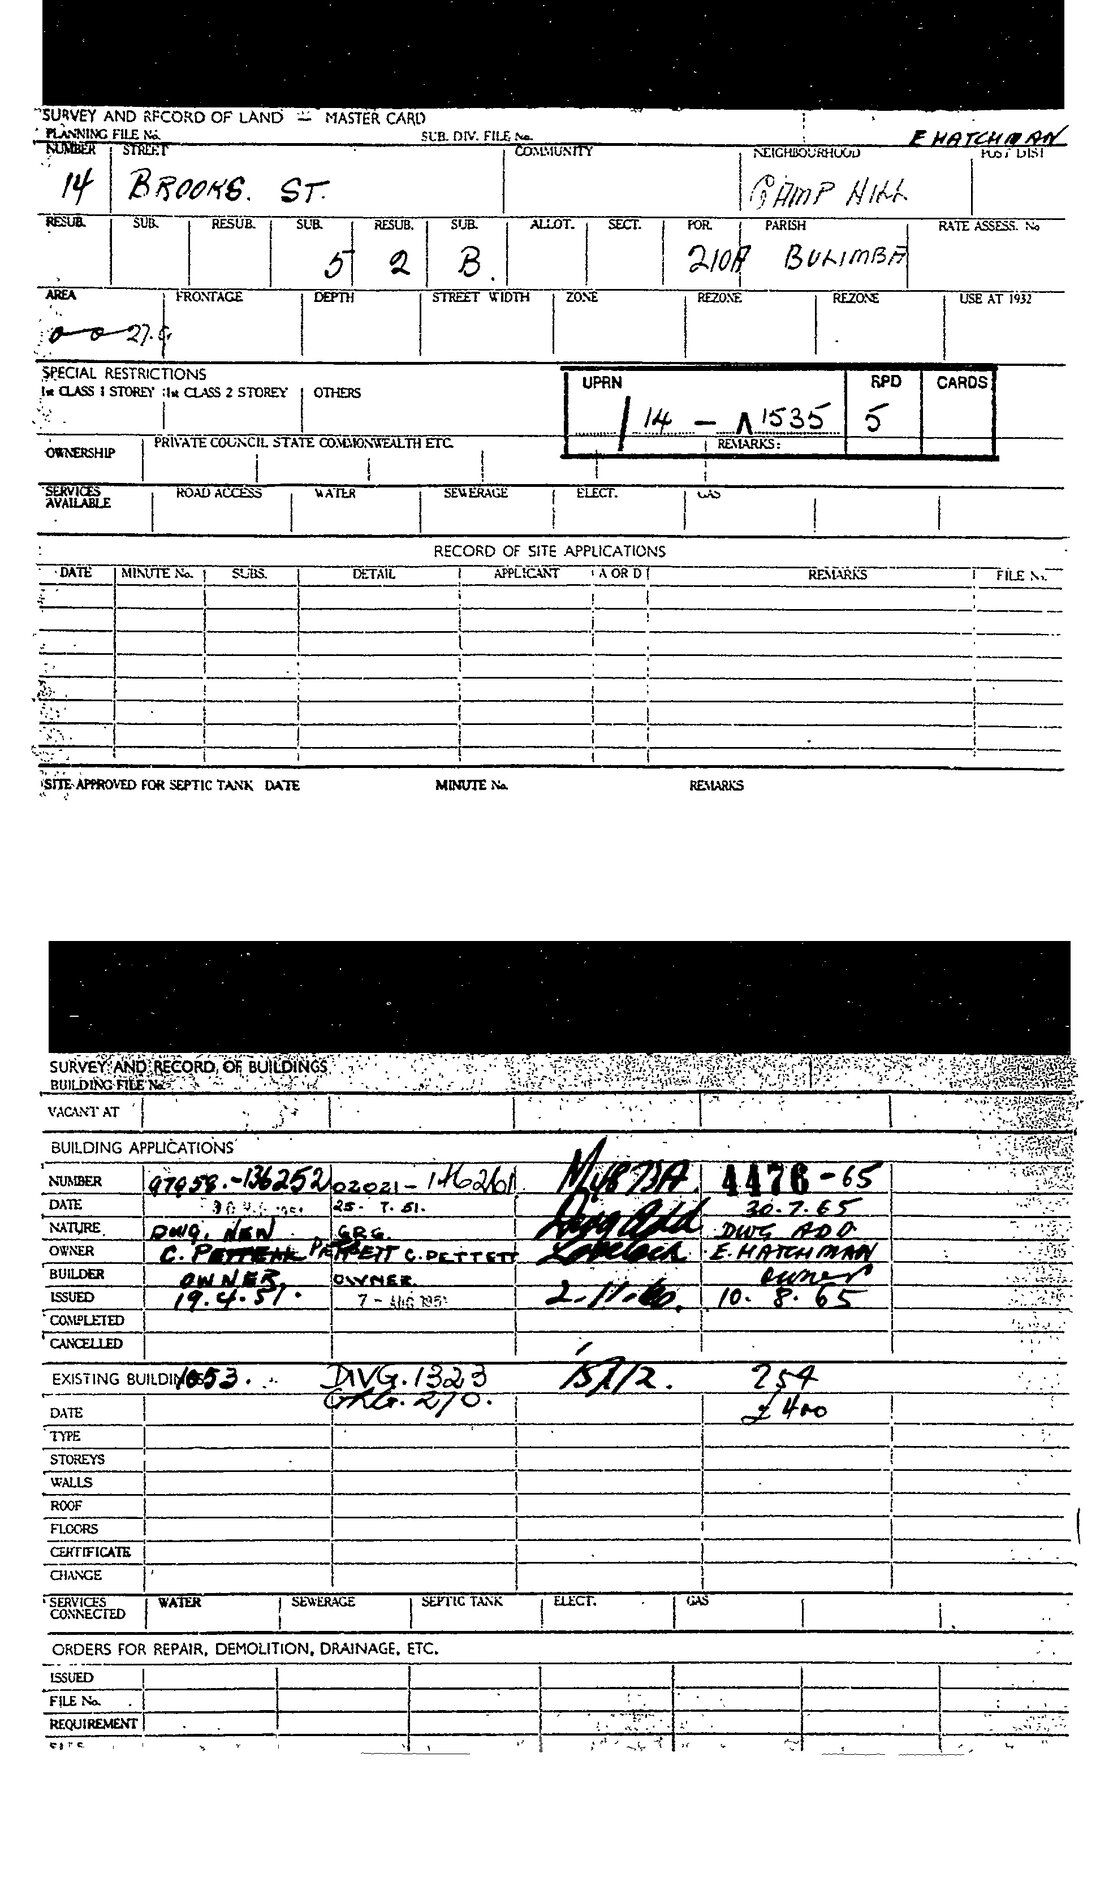 SURVEY AND RECORD OF LAND — MASTER CARD
PLANNING FILE No. SUB. DIV. FILE No. E HATCHMAN
NUMBER STREET COMMUNITY NEIGHBOURHOOD POST DIST
14 BROOKS. ST. CAMP HILL
RESUB. SUB. RESUB. SUB. RESUB. SUB. ALLOT. SECT. POR. PARISH RATE ASSESS. No
5 2 B. 210A BULIMBA
AREA FRONTAGE DEPTH STREET WIDTH ZONE REZONE REZONE USE AT 1932
0 - 0 - 27.
SPECIAL RESTRICTIONS
1st CLASS 1 STOREY 1st CLASS 2 STOREY OTHERS
UPRN RPD CARDS
/ 14 - 1535 5
OWNERSHIP PRIVATE COUNCIL STATE COMMONWEALTH ETC. REMARKS:
SERVICES AVAILABLE ROAD ACCESS WATER SEWERAGE ELECT. GAS
RECORD OF SITE APPLICATIONS
DATE MINUTE No. SUBS. DETAIL APPLICANT A OR D REMARKS FILE No.
SITE APPROVED FOR SEPTIC TANK DATE MINUTE No. REMARKS
SURVEY AND RECORD OF BUILDINGS
BUILDING FILE No.
VACANT AT
BUILDING APPLICATIONS
NUMBER 97958.-136252 02021-146261 4476-65
DATE 25. 7. 51. 30.7.65
NATURE DWG. NEW GRG. Dwg Add DWG ADD
OWNER C. PETTETT C. PETTETT Lovelock E. HATCHMAN
BUILDER OWNER. OWNER. owner
ISSUED 19.4.51. 7 - AUG 1951 2.11.60. 10. 8. 65
COMPLETED
CANCELLED
EXISTING BUILDINGS 1053. DWG. 1323 254
GRG. 270. £400
DATE
TYPE
STOREYS
WALLS
ROOF
FLOORS
CERTIFICATE
CHANGE
SERVICES CONNECTED WATER SEWERAGE SEPTIC TANK ELECT. GAS
ORDERS FOR REPAIR, DEMOLITION, DRAINAGE, ETC.
ISSUED
FILE No.
REQUIREMENT